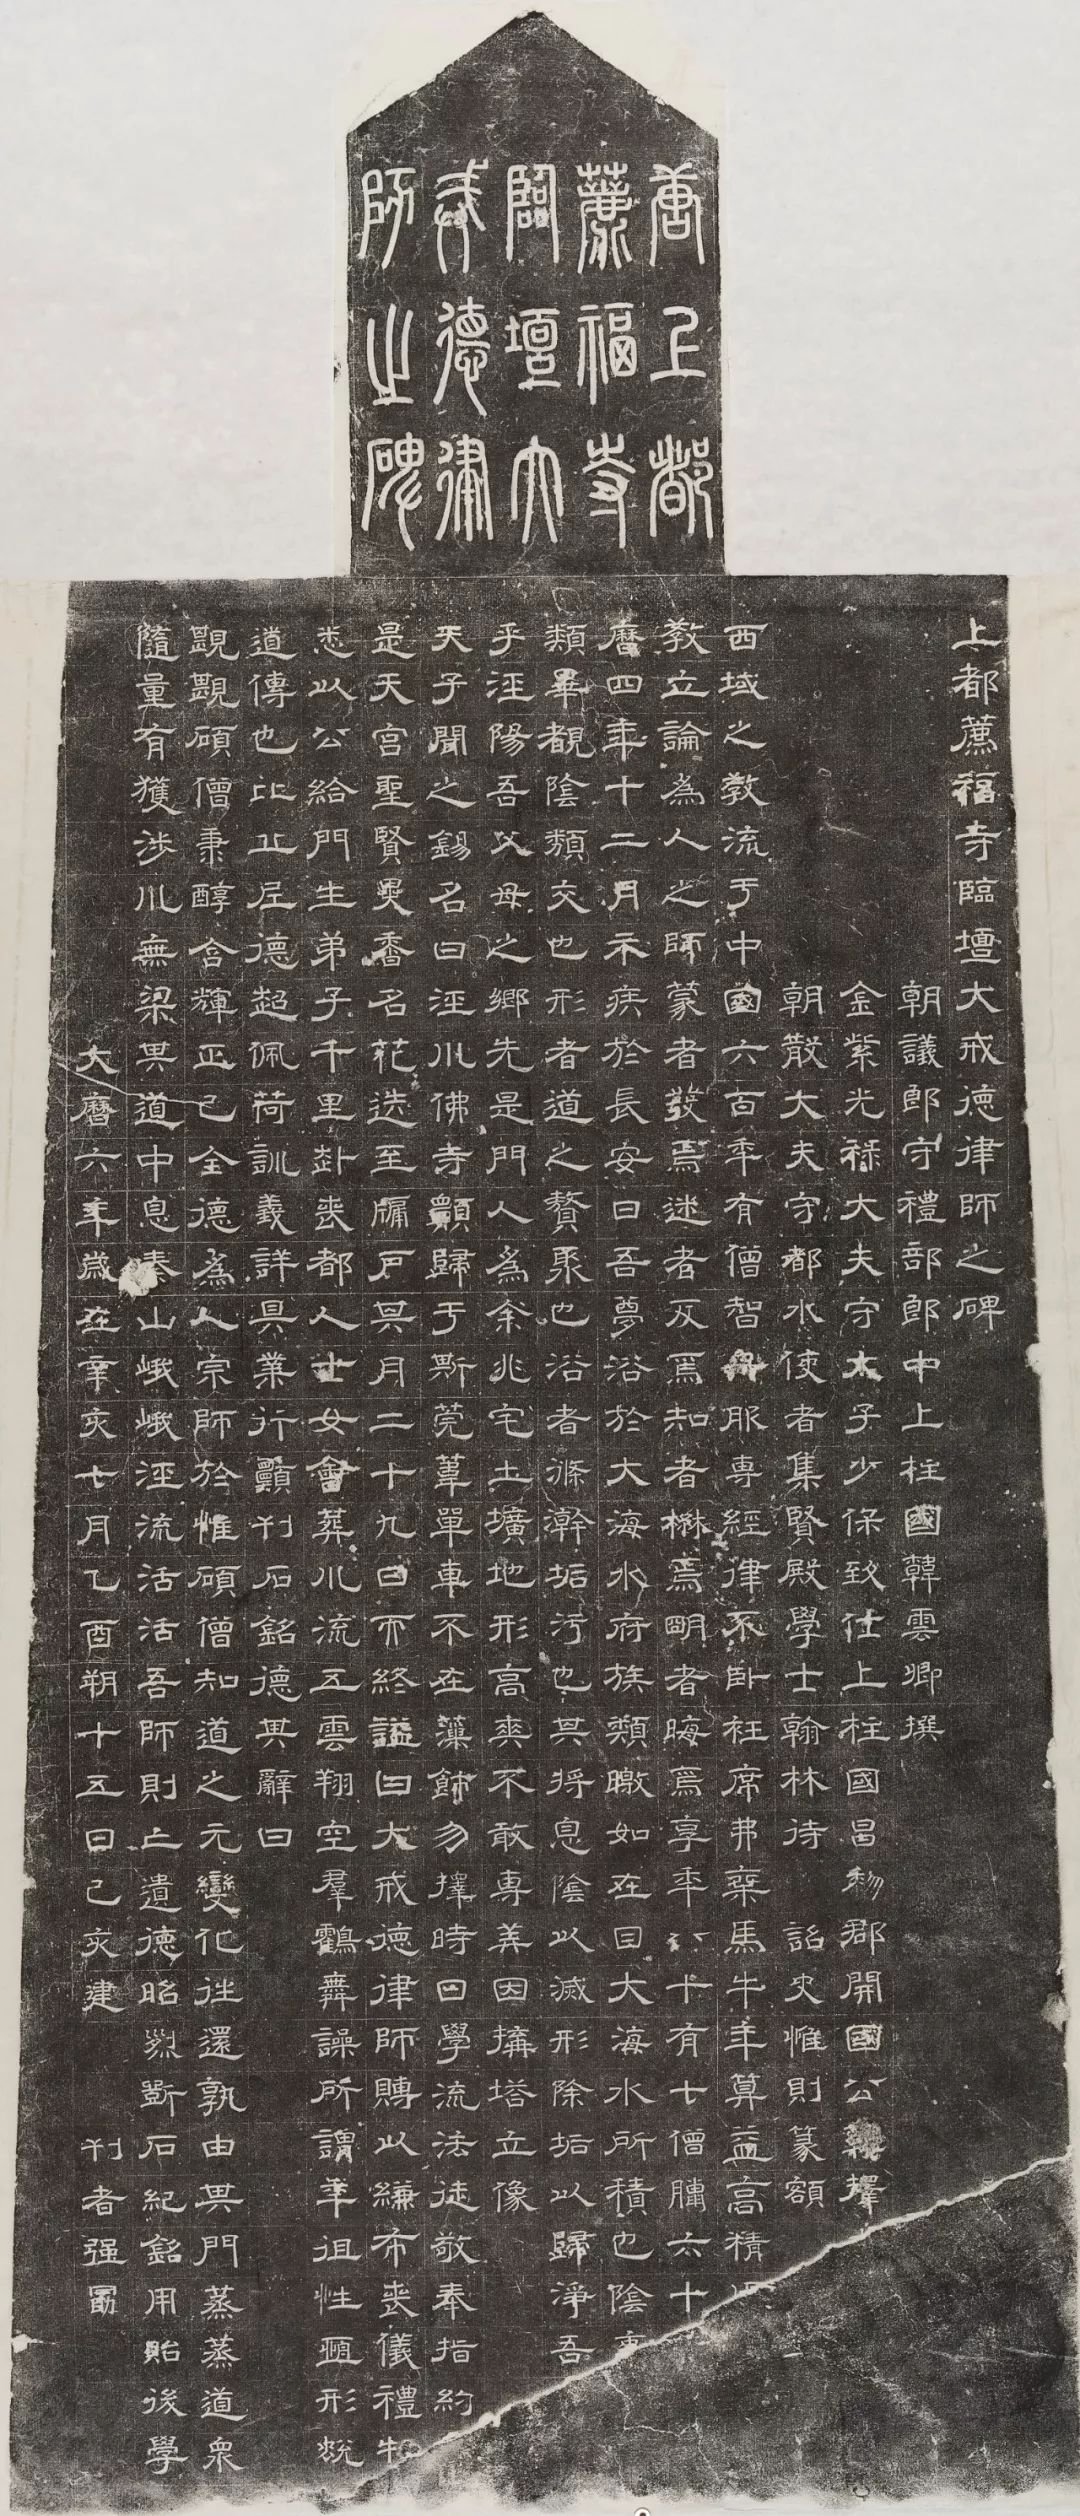 唐上都
薦福寺
臨壇大
戒德律
師之碑
上都薦福寺臨壇大戒德律師之碑
朝議郎守禮部郎中上柱國韓雲卿撰
金紫光祿大夫守太子少保致仕上柱國昌黎郡開國公韓擇
朝散大夫守都水使者集賢殿學士翰林待 詔史惟則篆額
西域之教流于中國六百年有僧智舟服專經律不臥衽席弗乘馬牛年算益高精
教立論為人之師蒙者發焉迷者反焉知者楙焉明者晦焉享年八十有七僧臘六十
曆四年十二月示疾於長安曰吾夢浴於大海水府族類曒如在目大海水所積也陰
類畢覩陰類交也形者道之贅聚也浴者滌澣垢污也其將息陰以滅形除垢以歸淨吾
乎涇陽吾父母之鄉先是門人為余兆宅土壙地形高爽不敢專美因搆塔立像
天子聞之錫名曰涇川佛寺顗歸于斯莞葦單車不在藻飾勿擇時日學流法徒敬奉指約
是天宮聖賢異香名花迭至牖戶其月二十九日而終謚曰大戒德律師賻以縑布喪儀禮物
悉以公給門生弟子千里赴喪都人士女會葬川流五雲翔空羣鶴舞譟所謂年徂性逼形
道傳也比丘尼德超佩荷訓義詳具業行顗刊石銘德其辭曰
覬覬碩僧秉醇含輝正己全德為人宗師於惟碩僧知道之元變化往還孰由其門蒸蒸道衆
隨量有獲涉川無梁畀道中息泰山峨峨涇流活活吾師則亡遺德昭烈斲石紀銘用貽後學
大曆六年歲在辛亥七月乙酉朔十五日己亥建 刊者強勗